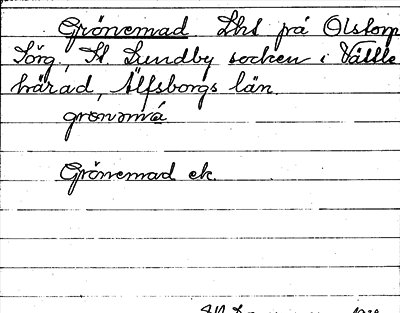 Grönemad Lht på Olstorp
Törg., St Lundby socken i Vättle
härad, Älfsborgs län.
Grönemad ek.